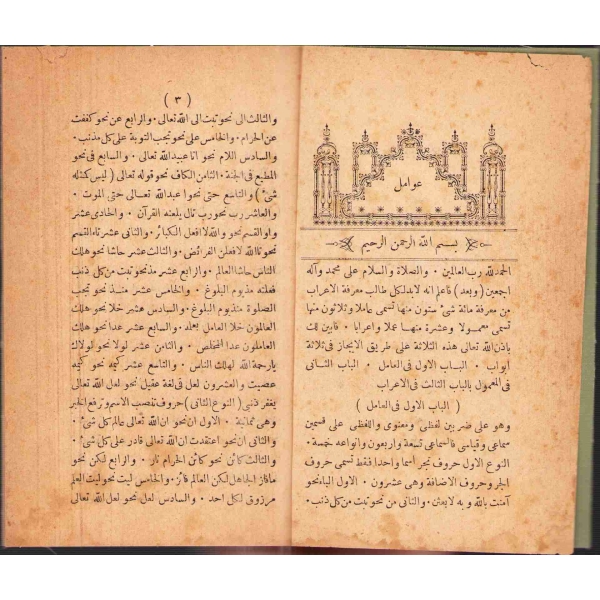 عوامل
بسم الله الرحمن الرحيم
الحمد لله رب العالمين ٠ والصلاة والسلام على محمد وآله
اجمعين ( وبعد ) فاعلم انه لابد لكل طالب معرفة الاعراب
من معرفة مائة شئ ستون منها تسمى عاملا وثلاثون منها
تسمى معمولا وعشرة منها عملا واعرابا ٠ فابين لك
باذن الله تعالى هذه الثلاثة على طريق الايجاز فى ثلاثة
ابواب ٠ الباب الاول فى العامل ٠ الباب الثانى
فى المعمول الباب الثالث فى الاعراب
( الباب الاول فى العامل )
وهو على ضربين لفظى ومعنوى واللفظى على قسمين
سماعى وقياسى فالسماعى تسعة واربعون وانواعه خمسة ٠
النوع الاول حروف تجر اسما واحدا فقط تسمى حروف
الجر وحروف الاضافة وهى عشرون ٠ الاول الباء نحو
آمنت بالله و به لابعثن ٠ والثانى من نحو تبت من كل ذنب ٠
( ٣ )
والثالث الى نحو تبت الى الله تعالى ٠ والرابع عن نحو كففت
عن الحرام ٠ والخامس على نحو تجب التوبة على كل مذنب ٠
والسادس اللام نحو انا عبيد الله تعالى ٠ والسابع فى نحو
المطيع فى الجنة ٠ الثامن الكاف نحو قوله تعالى ( ليس كمثله
شئ ) والتاسع حتى نحو اعبد الله تعالى حتى الموت ٠
والعاشر رب نحو رب تال يلعنه القرآن ٠ والحادى عشر
واو القسم نحو والله لا افعل الكبائر ٠ والثانى عشر تاء القسم
نحو تالله لافعلن الفرائض ٠ والثالث عشر حاشا نحو هلك
الناس حاشا العالم ٠ والرابع عشر مذ نحو تبت من كل ذنب
فعلته مذ يوم البلوغ ٠ والخامس عشر منذ نحو تجب
الصلوة منذ يوم البلوغ ٠ والسادس عشر خلا نحو هلك
العالمون خلا العامل بعلمه ٠ والسابع عشر عدا نحو هلك
العاملون عدا المخلص ٠ والثامن عشر لولا نحو لولاك
يارحمة الله لهلك الناس ٠ والتاسع عشر كيمه نحو كيمه
عصيت والعشرون لعل فى لغة عقيل نحو لعل الله تعالى
يغفر ذنبى ( النوع الثانى ) حروف تنصب الاسم وترفع الخبر
وهى ثمانية ٠ الاول ان نحو ان الله تعالى عالم كل شئ ٠
والثانى ان نحو اعتقدت ان الله تعالى قادر على كل شئ ٠
والثالث كأن نحو كأن الحرام نار ٠ والرابع لكن نحو
مافاز الجاهل لكن العالم فائز ٠ والخامس ليت نحو ليت العلم
مرزوق لكل احد ٠ والسادس لعل نحو لعل الله تعالى